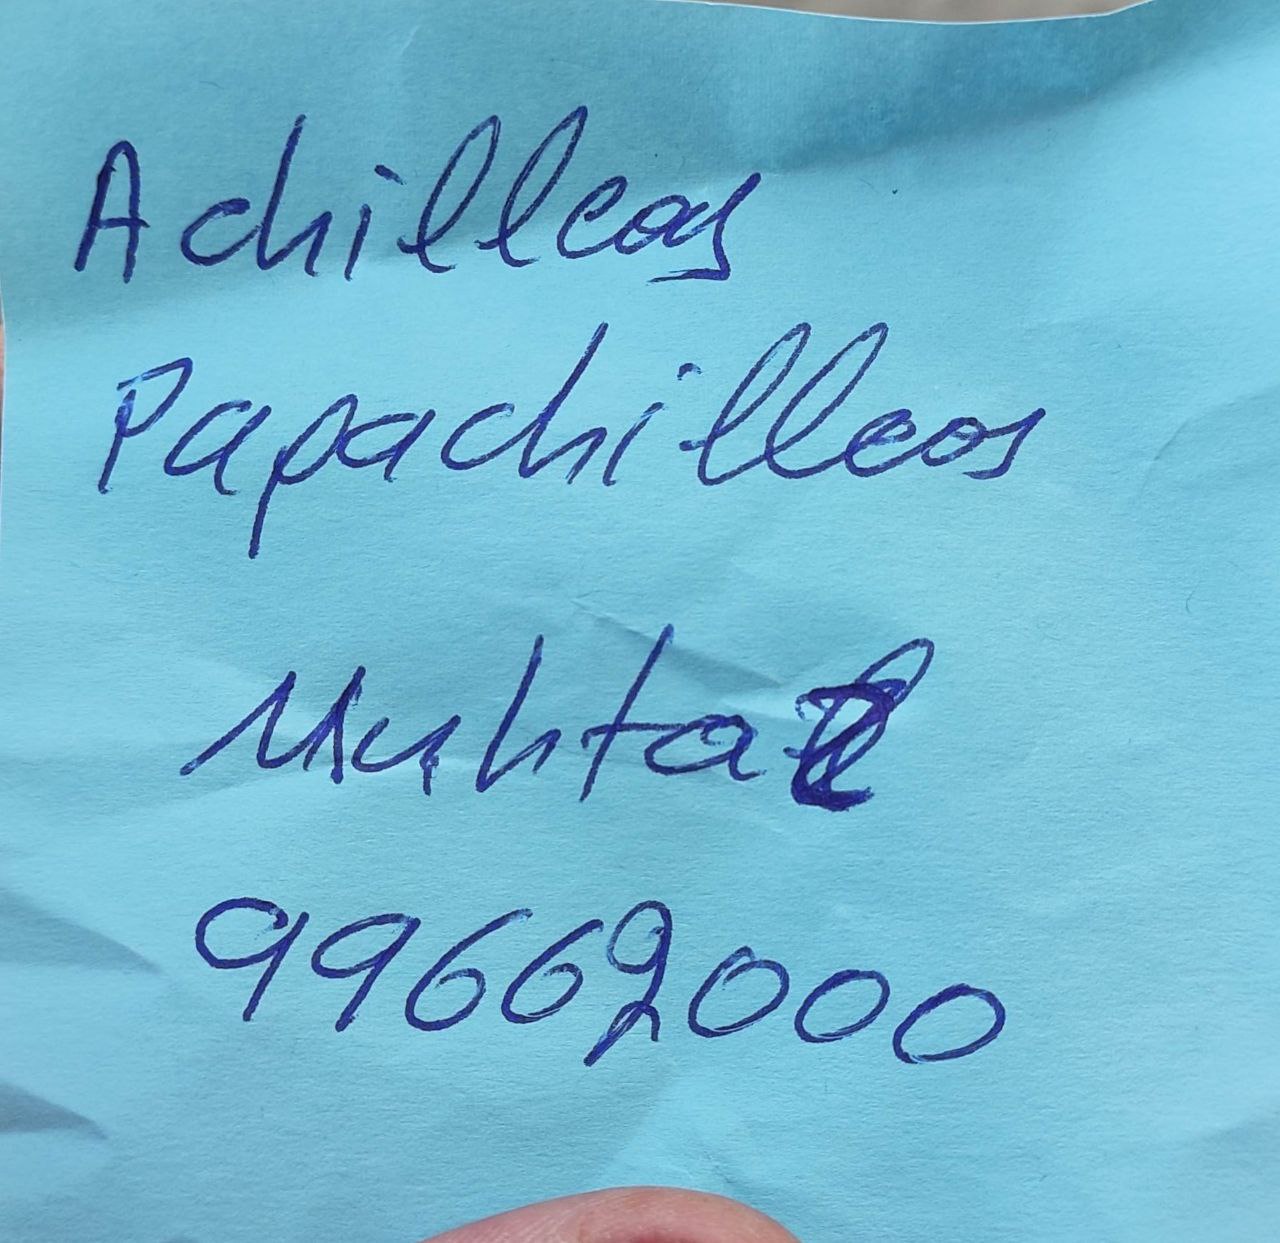 Achilleos
Papachilleos
Muhtar
99662000